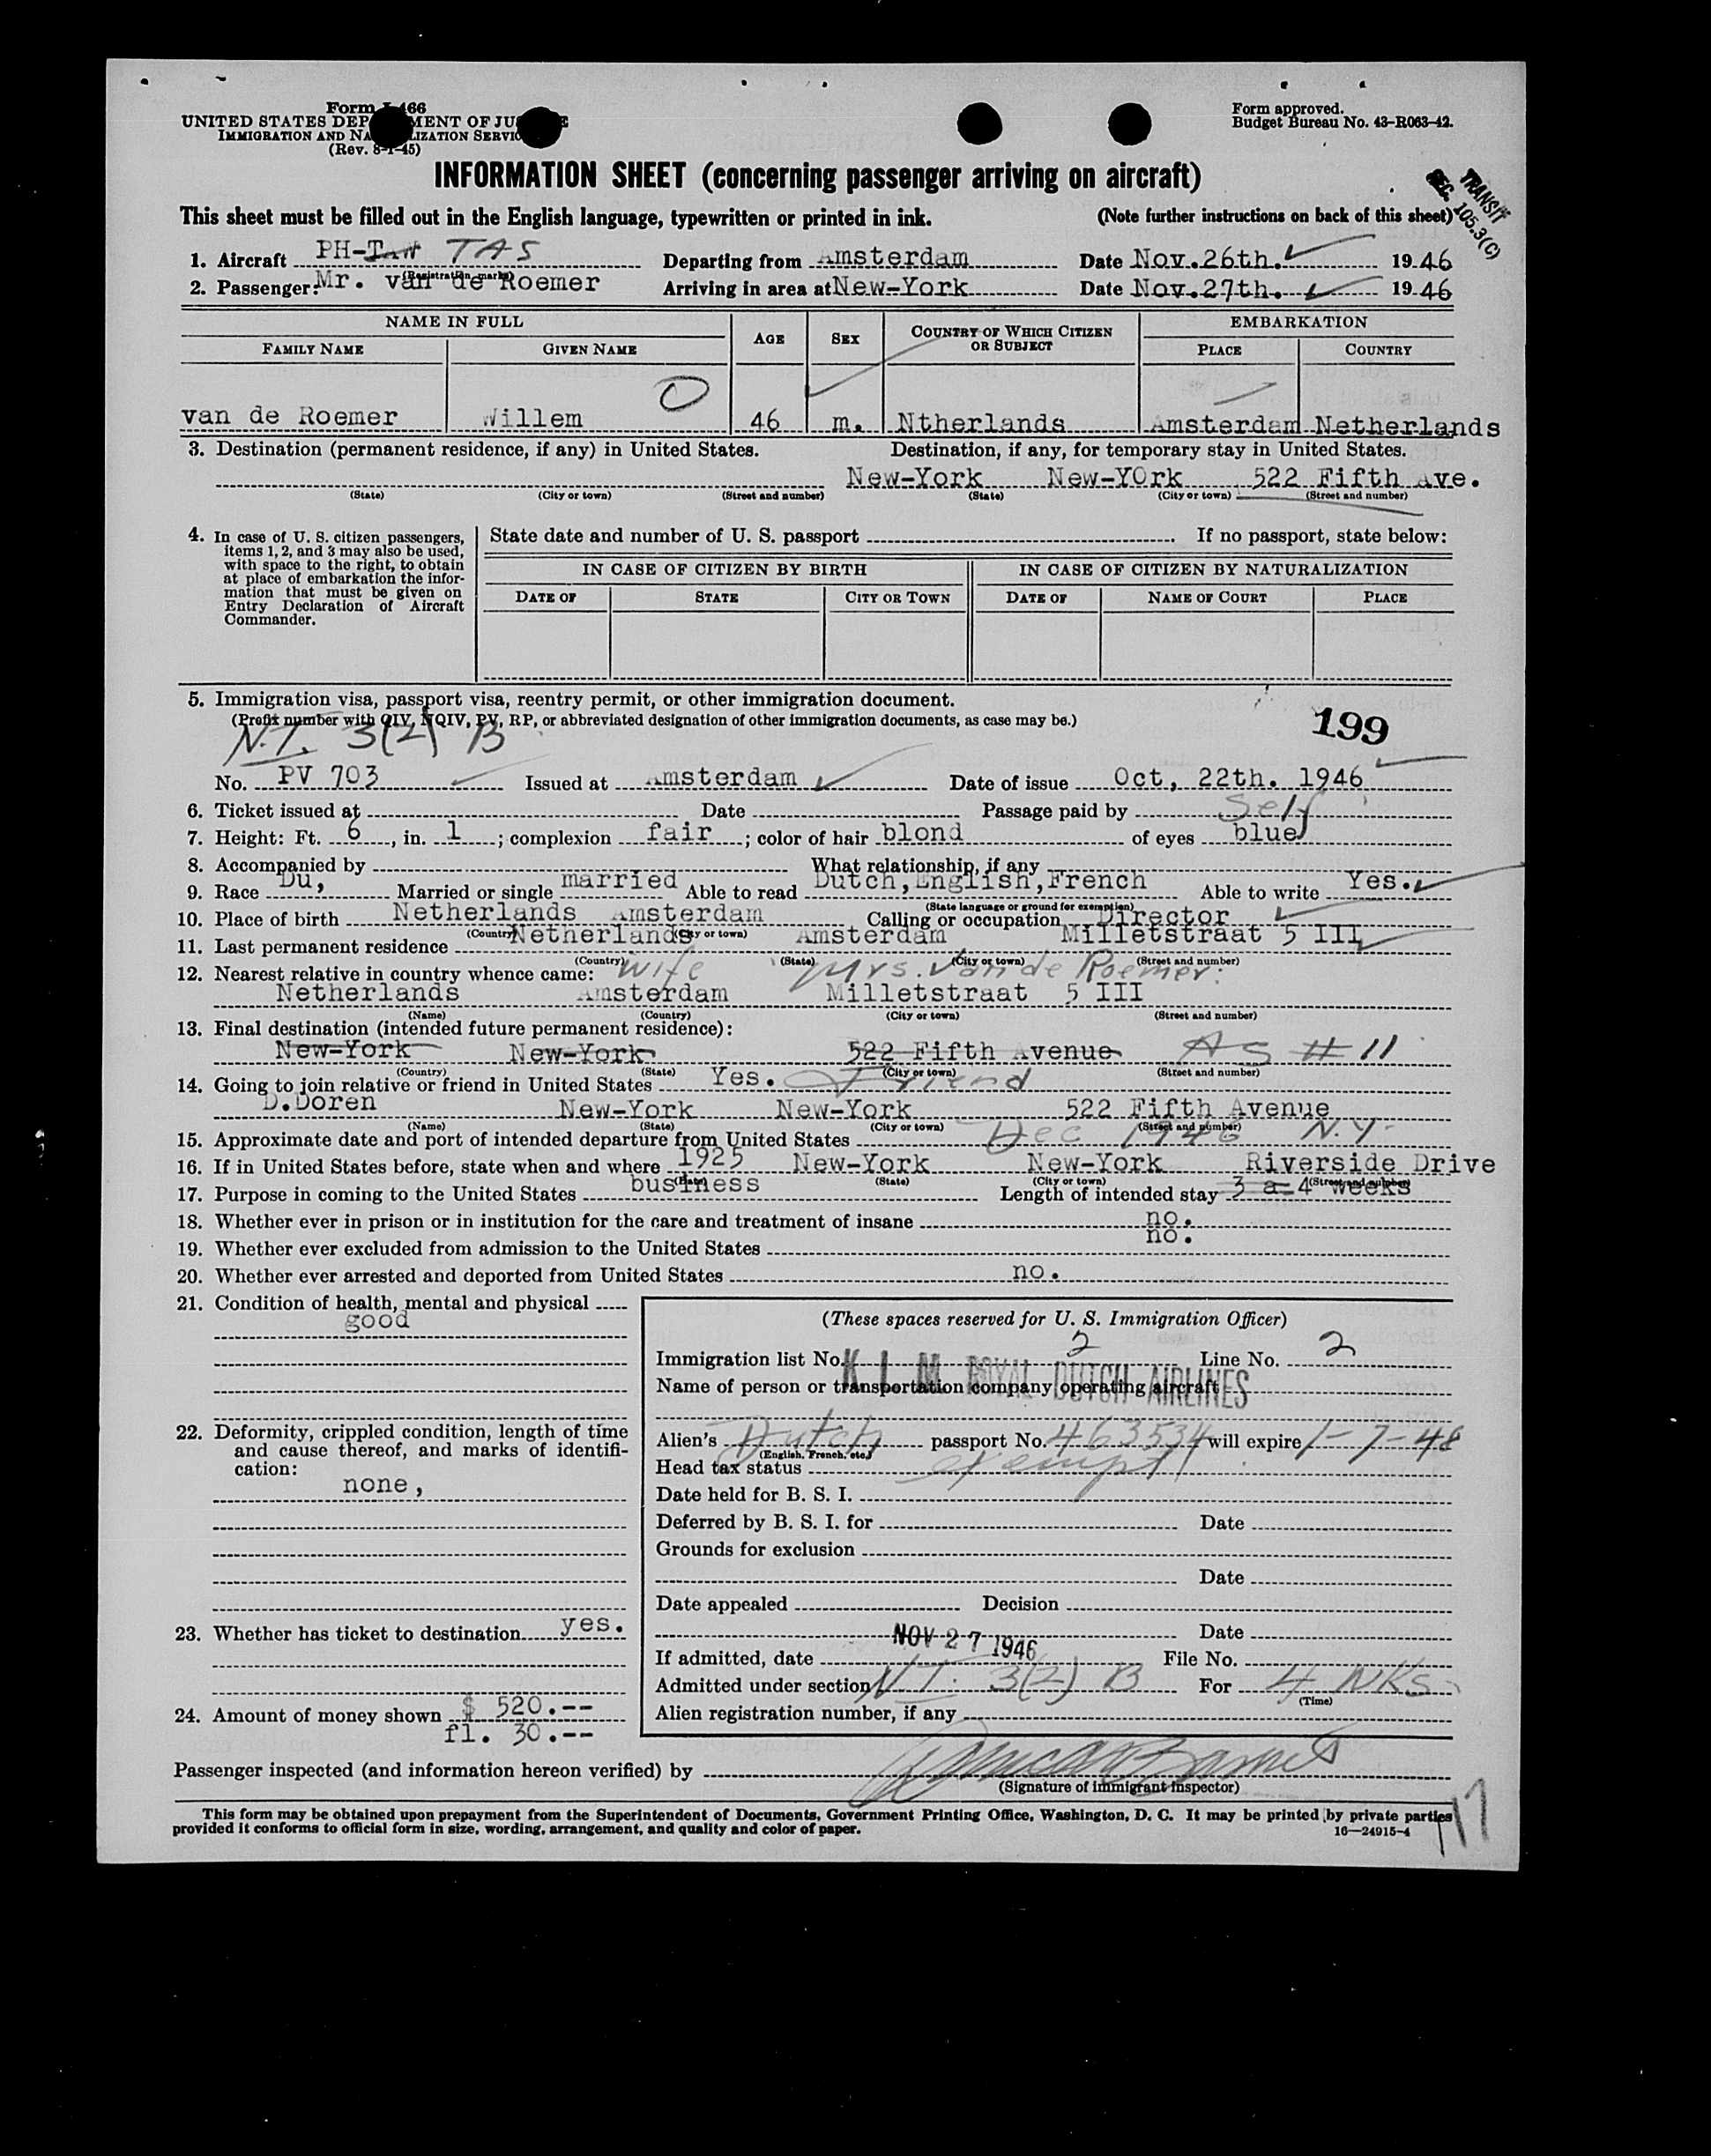 Form I-466
UNITED STATES DEPARTMENT OF JUSTICE
IMMIGRATION AND NATURALIZATION SERVICE
(Rev. 8-1-45)
Form approved.
Budget Bureau No. 43-R063-42.
INFORMATION SHEET (concerning passenger arriving on aircraft)
TRANSIT
SEC. 105.3(C)
This sheet must be filled out in the English language, typewritten or printed in ink. (Note further instructions on back of this sheet)
1. Aircraft PH-TAW TAS Departing from Amsterdam Date Nov.26th. 1946
(Registration marks)
2. Passenger: Mr. van de Roemer Arriving in area at New-York Date Nov.27th. 1946
NAME IN FULL AGE SEX COUNTRY OF WHICH CITIZEN OR SUBJECT EMBARKATION
FAMILY NAME GIVEN NAME PLACE COUNTRY
van de Roemer Willem 46 m. Ntherlands Amsterdam Netherlands
3. Destination (permanent residence, if any) in United States. Destination, if any, for temporary stay in United States.
New-York New-YOrk 522 Fifth Ave.
(State) (City or town) (Street and number) (State) (City or town) (Street and number)
4. In case of U. S. citizen passengers,
items 1, 2, and 3 may also be used,
with space to the right, to obtain
at place of embarkation the infor-
mation that must be given on
Entry Declaration of Aircraft
Commander.
State date and number of U. S. passport If no passport, state below:
IN CASE OF CITIZEN BY BIRTH IN CASE OF CITIZEN BY NATURALIZATION
DATE OF STATE CITY OR TOWN DATE OF NAME OF COURT PLACE
5. Immigration visa, passport visa, reentry permit, or other immigration document.
(Prefix number with QIV, NQIV, PV, RP, or abbreviated designation of other immigration documents, as case may be.)
199
N.I. 3(2) B
No. PV 703 Issued at Amsterdam Date of issue Oct, 22th. 1946
6. Ticket issued at Date Passage paid by Self
7. Height: Ft. 6, in. 1; complexion fair; color of hair blond of eyes blue
8. Accompanied by What relationship, if any
9. Race Du, Married or single married Able to read Dutch,English,French Able to write Yes.
(State language or ground for exemption)
10. Place of birth Netherlands Amsterdam Calling or occupation Director
(Country) (City or town)
11. Last permanent residence Netherlands Amsterdam Milletstraat 5 III
(Country) (State) (City or town) (Street and number)
12. Nearest relative in country whence came: Wife Mrs. Van de Roemer.
Netherlands Amsterdam Milletstraat 5 III
(Name) (Country) (City or town) (Street and number)
13. Final destination (intended future permanent residence):
New-York New-York 522 Fifth Avenue AS # 11
(Country) (State) (City or town) (Street and number)
14. Going to join relative or friend in United States Yes. Friend
D.Doren New-York New-York 522 Fifth Avenue
(Name) (State) (City or town) (Street and number)
15. Approximate date and port of intended departure from United States Dec 1946 N.Y.
16. If in United States before, state when and where 1925 New-York New-York Riverside Drive
(Date) (State) (City or town) (Street and number)
17. Purpose in coming to the United States business Length of intended stay 3 a 4 weeks
18. Whether ever in prison or in institution for the care and treatment of insane no.
19. Whether ever excluded from admission to the United States no.
20. Whether ever arrested and deported from United States no.
21. Condition of health, mental and physical
good
22. Deformity, crippled condition, length of time
and cause thereof, and marks of identifi-
cation:
none,
23. Whether has ticket to destination yes.
24. Amount of money shown $ 520.--
fl. 30.--
(These spaces reserved for U. S. Immigration Officer)
Immigration list No. 2 Line No. 2
K L M ROYAL DUTCH AIRLINES
Name of person or transportation company operating aircraft
Alien's Dutch passport No. 463534 will expire 1-7-48
(English, French, etc.)
Head tax status exempt
Date held for B. S. I.
Deferred by B. S. I. for Date
Grounds for exclusion
Date
Date appealed Decision
Date
If admitted, date NOV 27 1946 File No.
Admitted under section N.I. 3(2) B For 4 WKS
(Time)
Alien registration number, if any
Passenger inspected (and information hereon verified) by
(Signature of immigrant inspector)
This form may be obtained upon prepayment from the Superintendent of Documents, Government Printing Office, Washington, D. C. It may be printed by private parties
provided it conforms to official form in size, wording, arrangement, and quality and color of paper. 16—24915-4